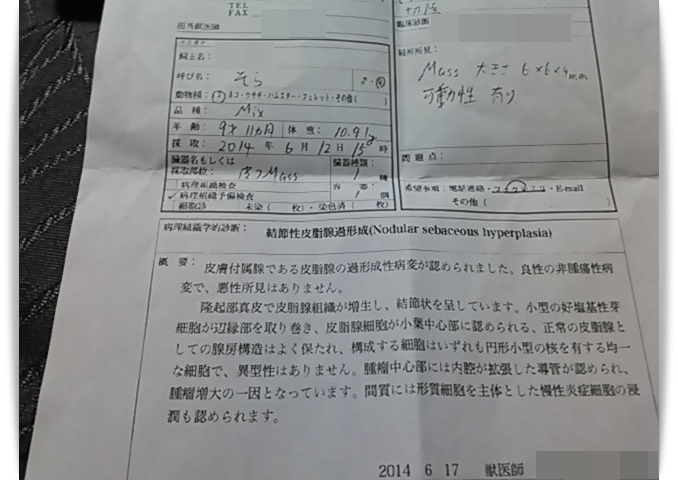 TEL
FAX
担当獣医師
臨床診断
フリガナ
飼主名:
局所所見:
Mass 大きさ 6×6×4mm
可動性 有り
呼び名: そら ♂・♀
動物種: イヌ・ネコ・ウサギ・ハムスター・フェレット・その他(
品 種: Mix
年 齢: 9才11カ月 体 重: 10.9kg
採 取: 2014年 6月12日 15時
臓器名もしくは 臓器種類:
採取部位: Mass 1 種
問題点:
病理組織検査 容 器:
✓病理組織予備検査 1 個
細胞診 未染( 枚)・染色済( 枚)
希望事項: 電話連絡・・E-mail
その他(
病理組織学的診断: 結節性皮脂腺過形成(Nodular sebaceous hyperplasia)
概 要: 皮膚付属腺である皮脂腺の過形成性病変が認められました。良性の非腫瘍性病
変で、悪性所見はありません。
隆起部真皮で皮脂腺組織が増生し、結節状を呈しています。小型の好塩基性芽
細胞が辺縁部を取り巻き、皮脂腺細胞が小葉中心部に認められる、正常の皮脂腺と
しての腺房構造はよく保たれ、構成する細胞はいずれも円形小型の核を有する均一
な細胞で、異型性はありません。腫瘤中心部には内腔が拡張した導管が認められ、
腫瘤増大の一因となっています。間質には形質細胞を主体とした慢性炎症細胞の浸
潤も認められます。
2014 6 17 獣医師